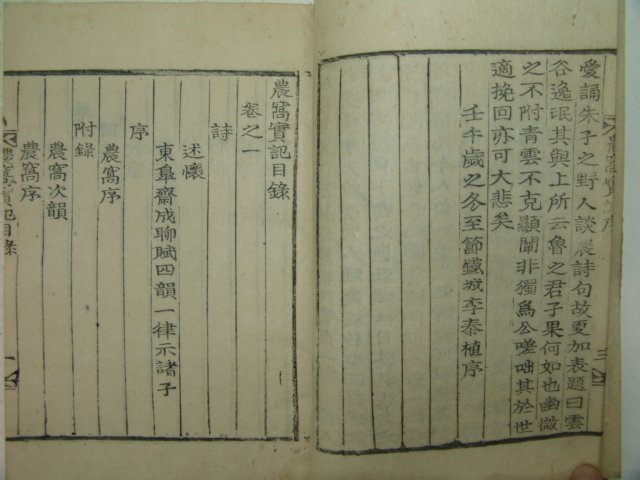 愛誦朱子之野人談農詩句故更加表題曰雲
谷逸氓其與上所云魯之君子果何如也幽微
之不附青雲不克顯闡非獨爲公嗟咄其於世
適挽回亦可大悲矣
壬午歲之冬至節鐵城李泰植序
農窩實記目錄
卷之一
詩
述懷
東皐齋成聊賦四韻一律示諸子
序
農窩序
附錄
農窩次韻
農窩序
農窩實記目錄
一